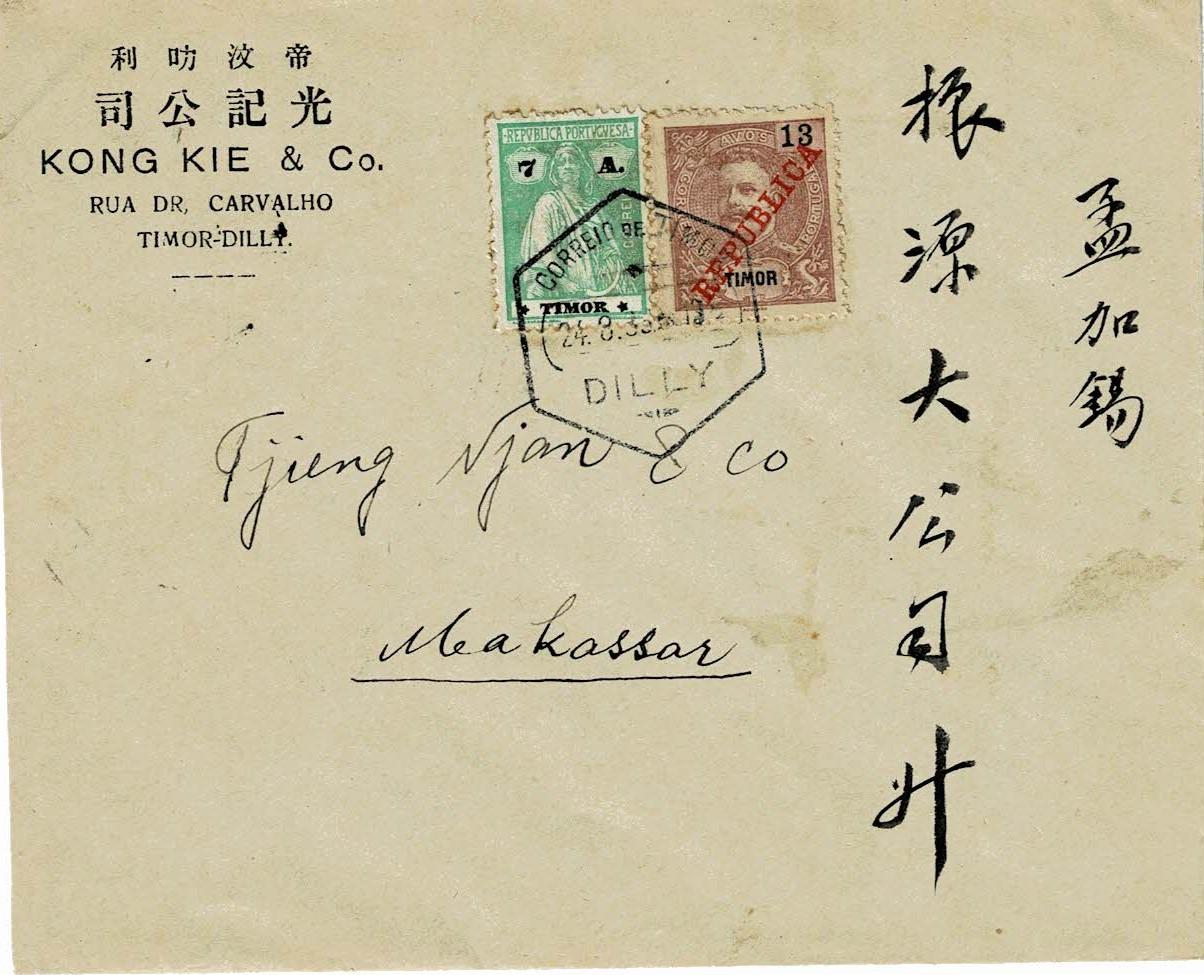 利叻汶帝
司公記光
KONG KIE & Co.
RUA DR, CARVALHO
TIMOR-DILLY.
REPUBLICA PORTUGUESA
7 A.
CORREIO
TIMOR
13
AVOS
CORREIO
PORTUGAL
REPUBLICA
TIMOR
CORREIO DE TIMOR
24.8.33
DILLY
Tjieng Njan & Co
Makassar
孟加錫
振源大公司升